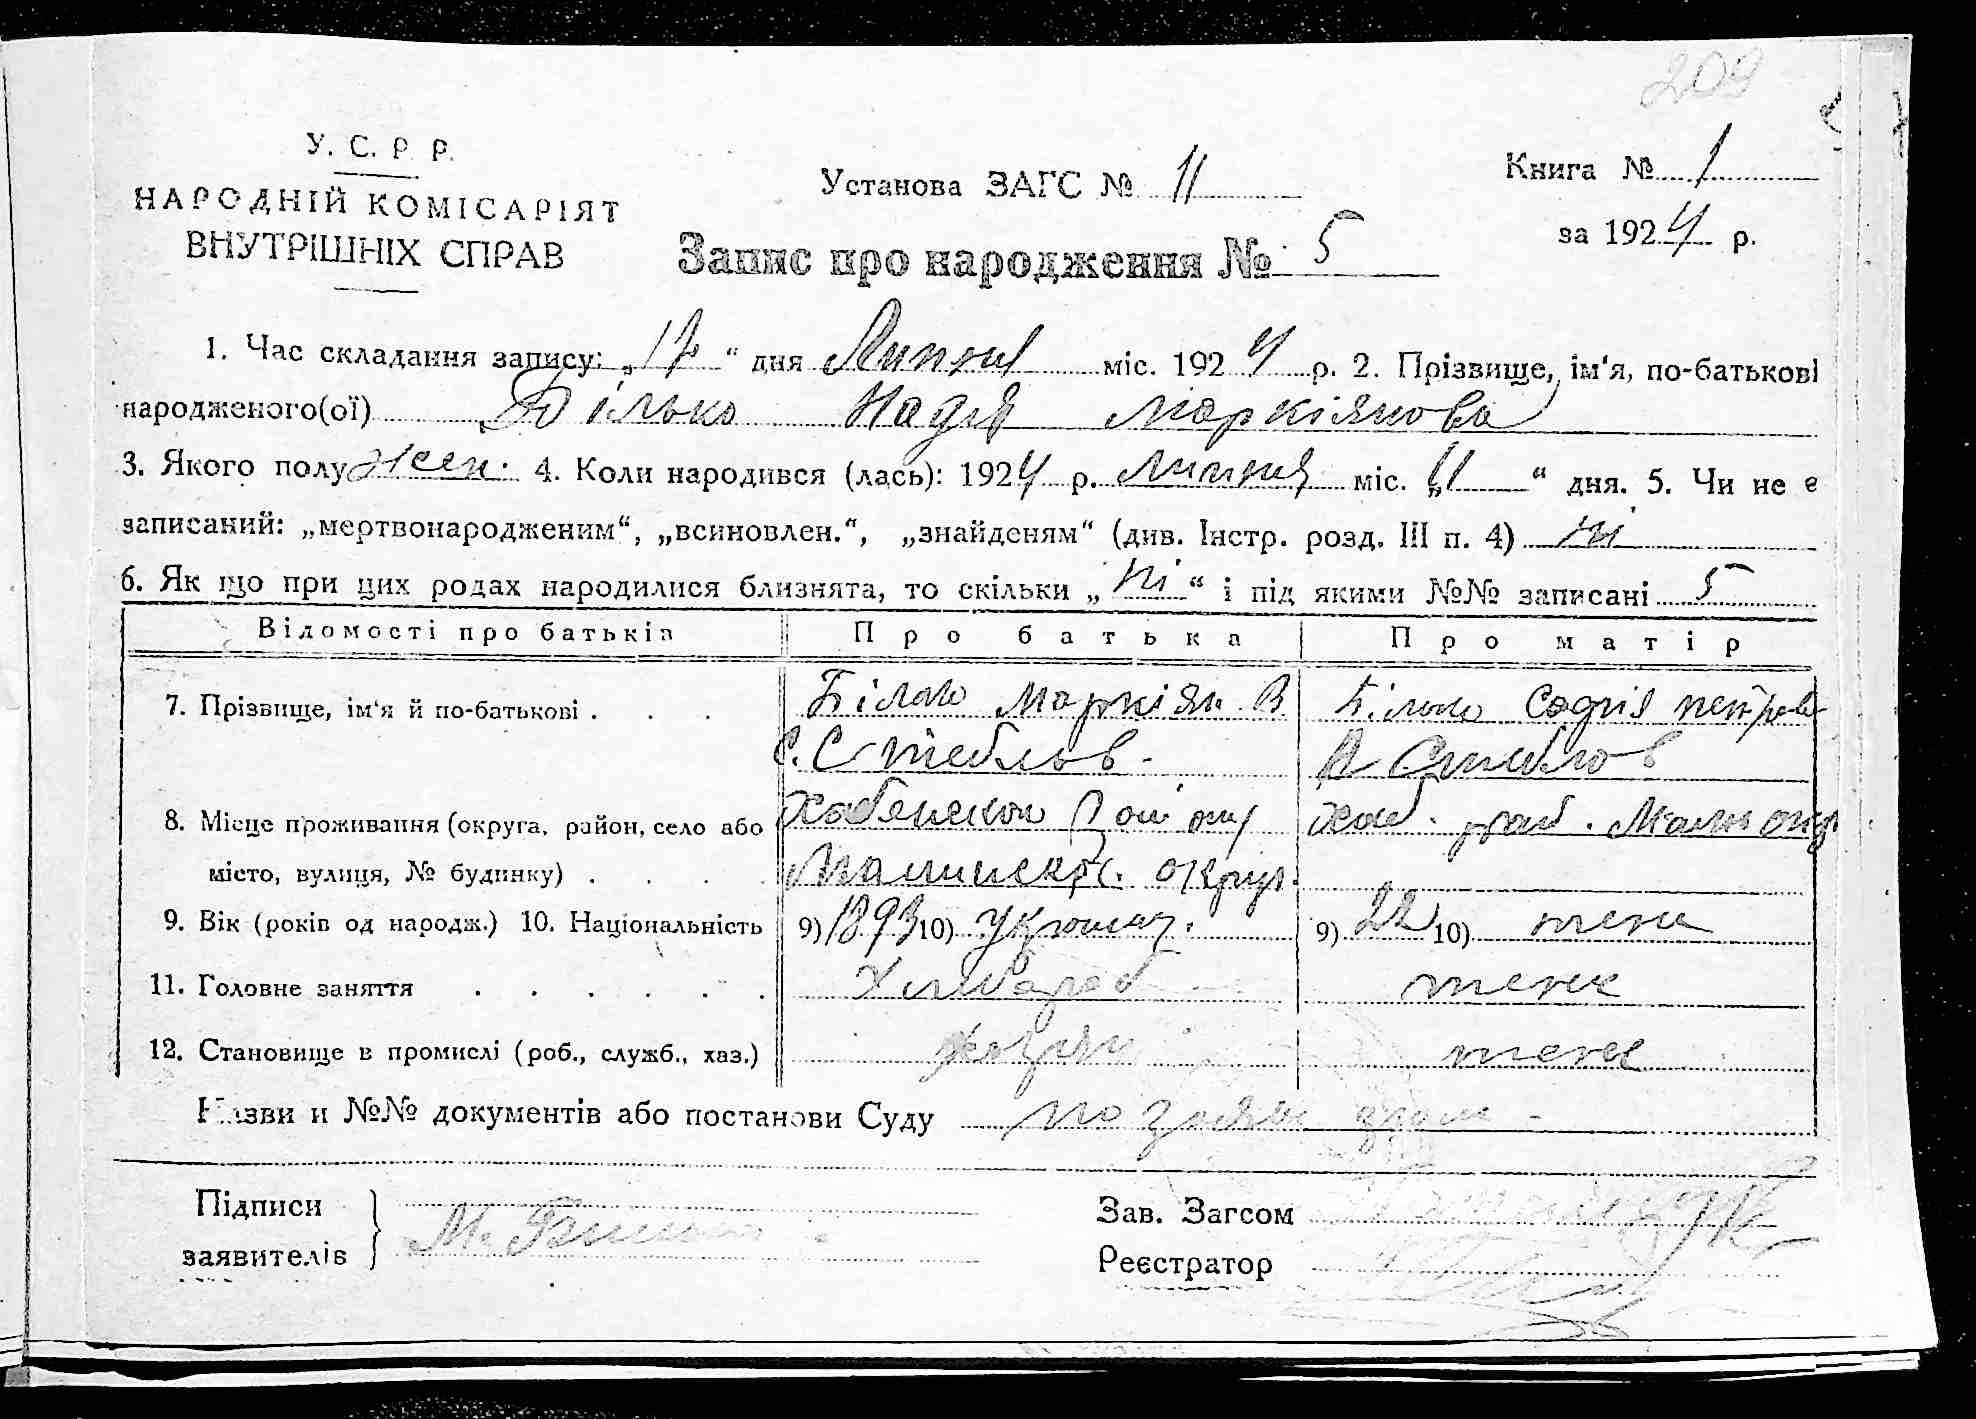 209
У. С. Р. Р.
НАРОДНІЙ КОМІСАРІЯТ
ВНУТРІШНІХ СПРАВ
Установа ЗАГС № 11
Книга № 1
за 1924 р.
Запис про народження № 5
1. Час складання запису: „17“ дня Липня міс. 1924 р. 2. Прізвище, ім‘я, по-батькові
народженого(ої) Білько Надія Маркіянова
3. Якого полу жен. 4. Коли народився (лась): 1924 р. Липня міс. „11“ дня. 5. Чи не є
записаний: „мертвонародженим“, „всиновлен.“, „знайденям“ (див. Інстр. розд. III п. 4) ні
6. Як що при цих родах народилися близнята, то скільки „ні“ і під якими №№ записані 5
Відомості про батьків Про батька Про матір
7. Прізвище, ім‘я й по-батькові . . . Білько Маркіян В Білько Софія
с. Стебльов
8. Місце проживання (округа, район, село або Хабенского Район
місто, вулиця, № будинку) . . . . округ.
9. Вік (років од народж.) 10. Національність 9) 1893 10) 9) 22 10) теж
11. Головне заняття . . . . . . Хлібороб теж
12. Становище в промислі (роб., служб., хаз.) хазяін теж
Назви й №№ документів або постанови Суду по
Підписи
заявителів М.
Зав. Загсом
Реєстратор